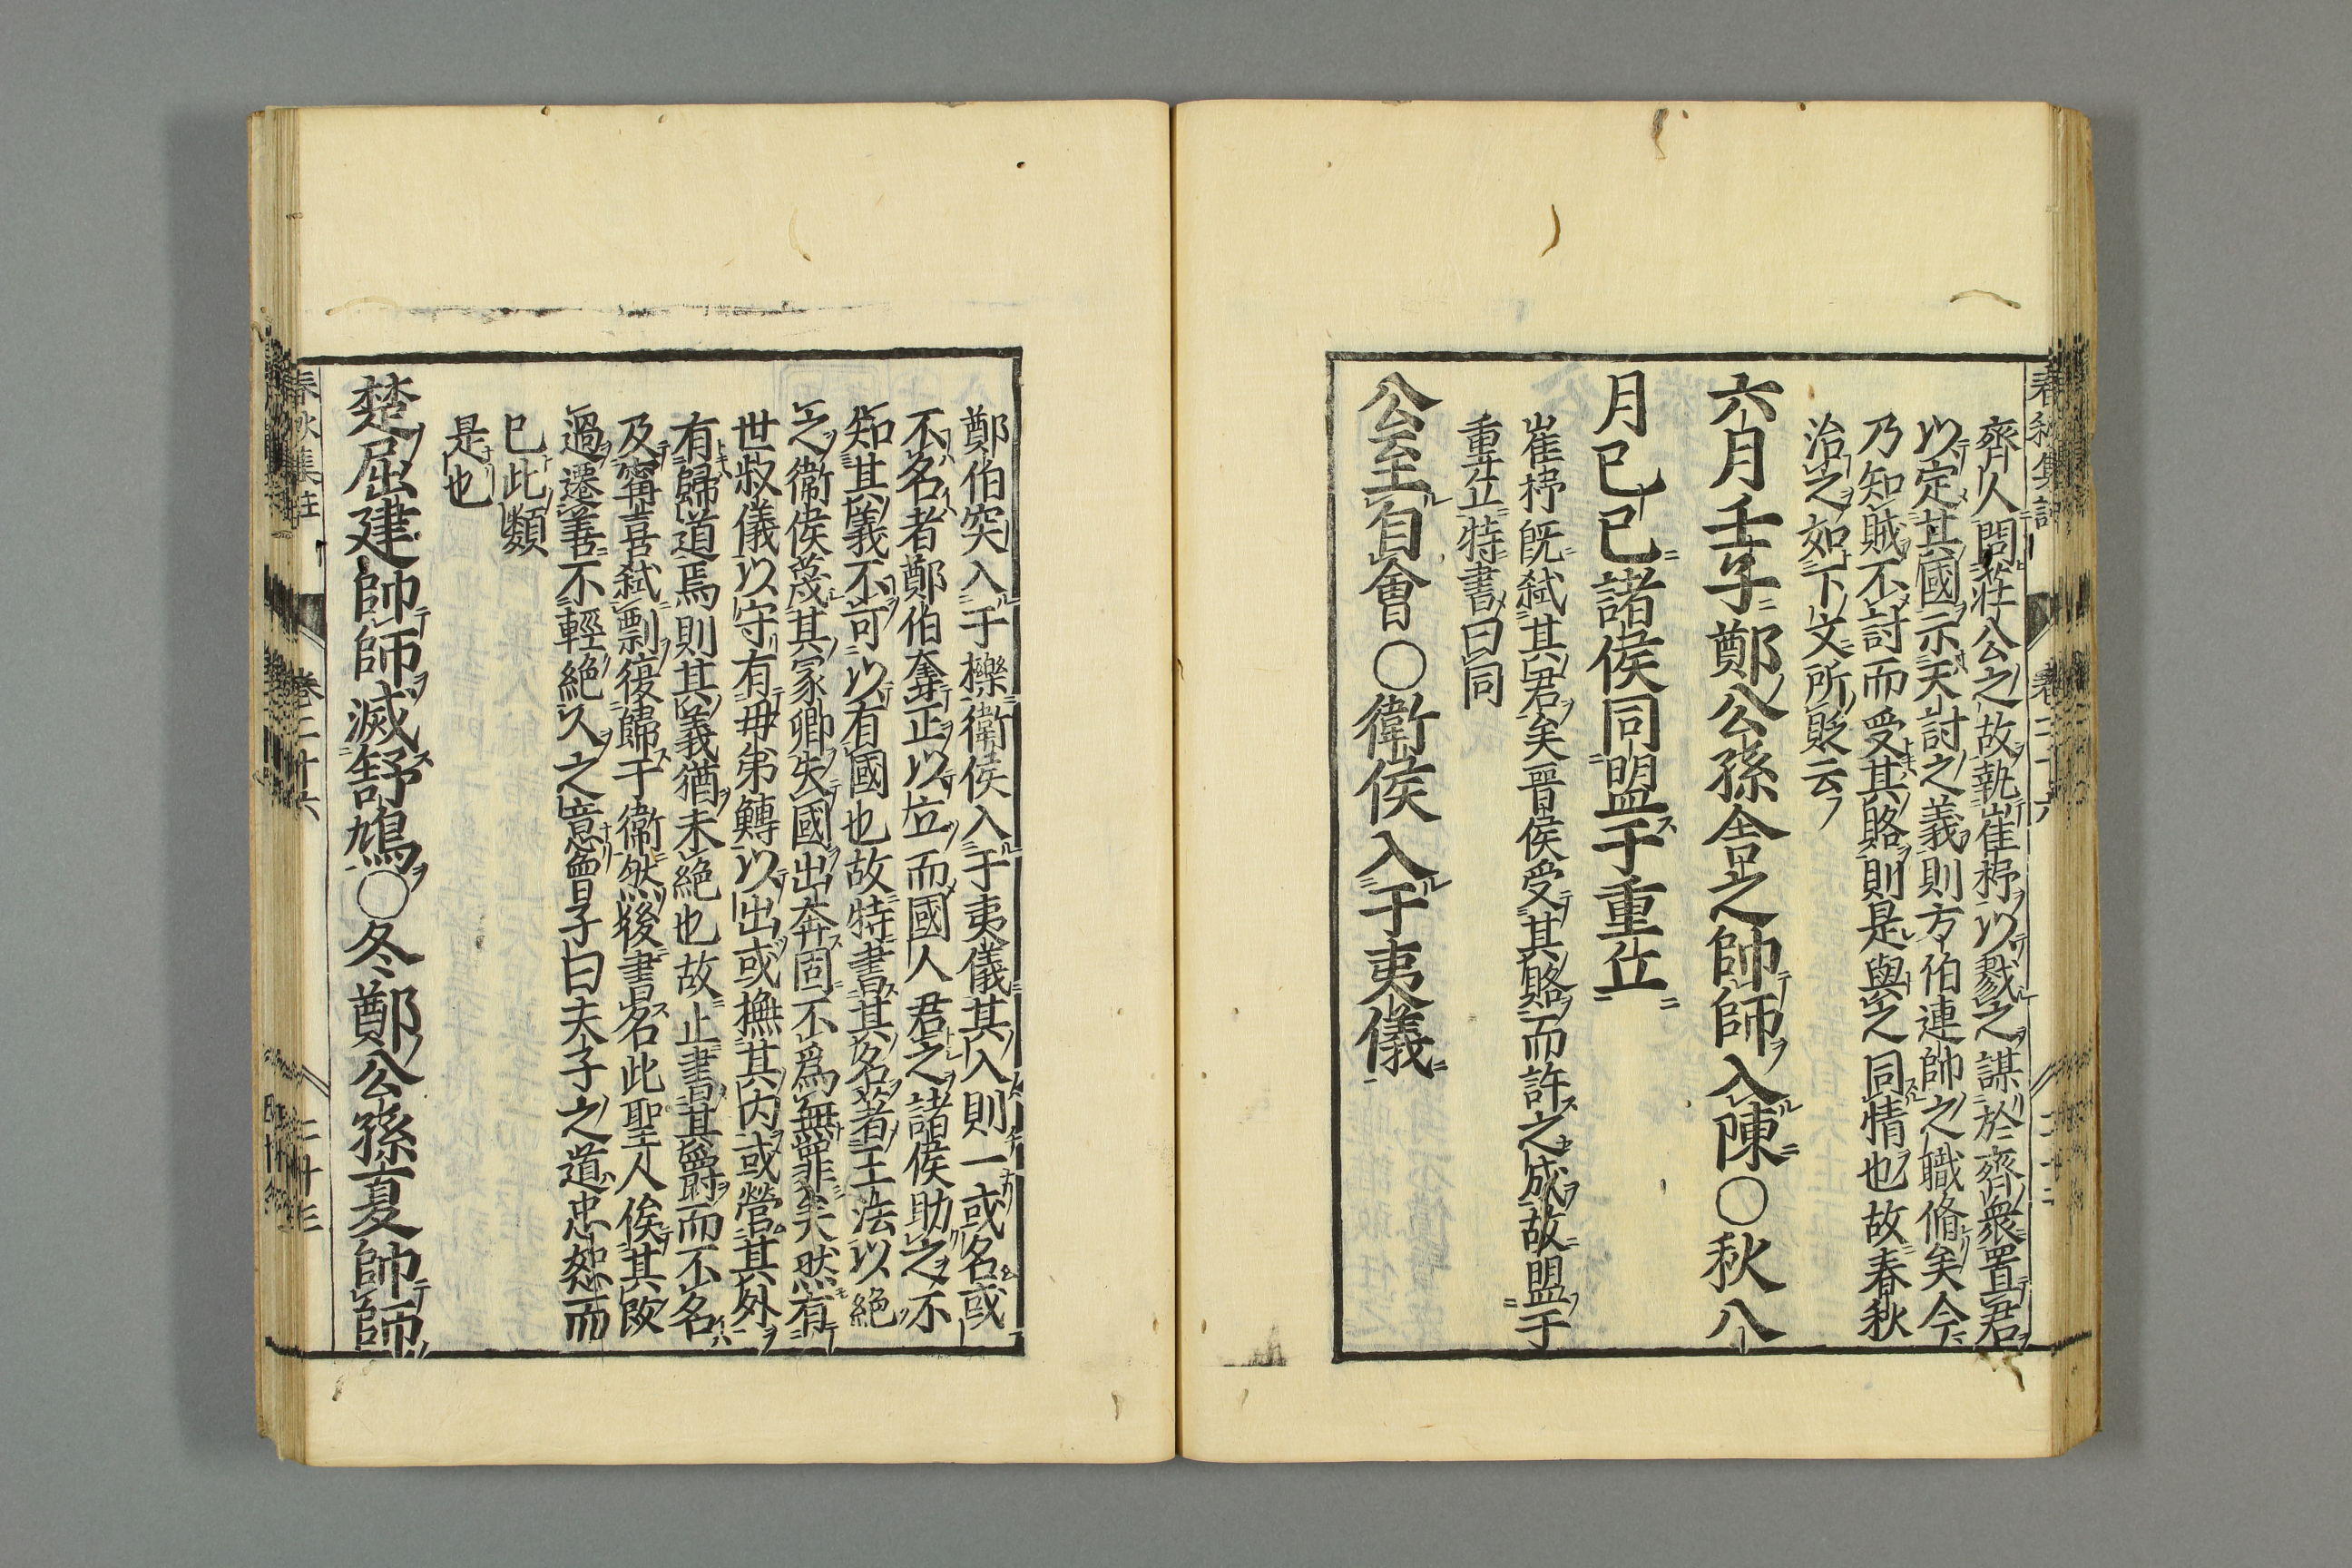 齊人問莊公之故執崔杼以戮之謀於齊衆置君
以定其國示天討之義則方伯連帥之職脩矣今
乃知賊不討而受其賂則是與之同情也故春秋
治之如下文所貶云
六月壬子鄭公孫舍之帥師入陳〇秋八
月己巳諸侯同盟于重丘
崔杼既弑其君矣晉侯受其賂而許之成故盟于
重丘特書曰同
公至自會〇衛侯入于夷儀
鄭伯突入于櫟衛侯入于夷儀其入則一或名或
不名者鄭伯奪正以立而國人君之諸侯助之不
知其義不可以有國也故特書其名著王法以絶
之衛侯蔑其冢卿失國出奔固不爲無罪矣然有
世叔儀以守有母弟鱄以出或撫其内或營其外
有歸道焉則其義猶未絶也故止書其爵而不名
及甯喜弑剽復歸于衛然後書名此聖人俟其改
過遷善不輕絶人之意曾子曰夫子之道忠恕而
已此類
是也
楚屈建帥師滅舒鳩〇冬鄭公孫夏帥師
春秋集註 卷二十六 二十三